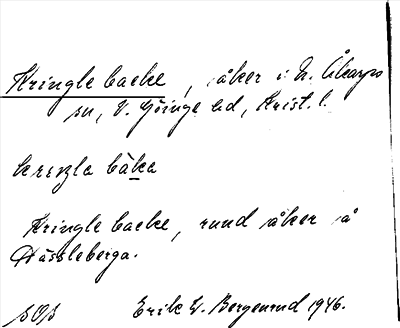 Kringle backe, åker i N. Åkarps
sn, V. Göinge hd, Krist. l.
krɪŋla bàka
Kringle backe, rund åker å
Hässleberga.
SOS Erik W. Bergenrud 1946.